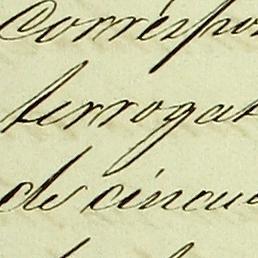 correspon
terrogat
de cincue